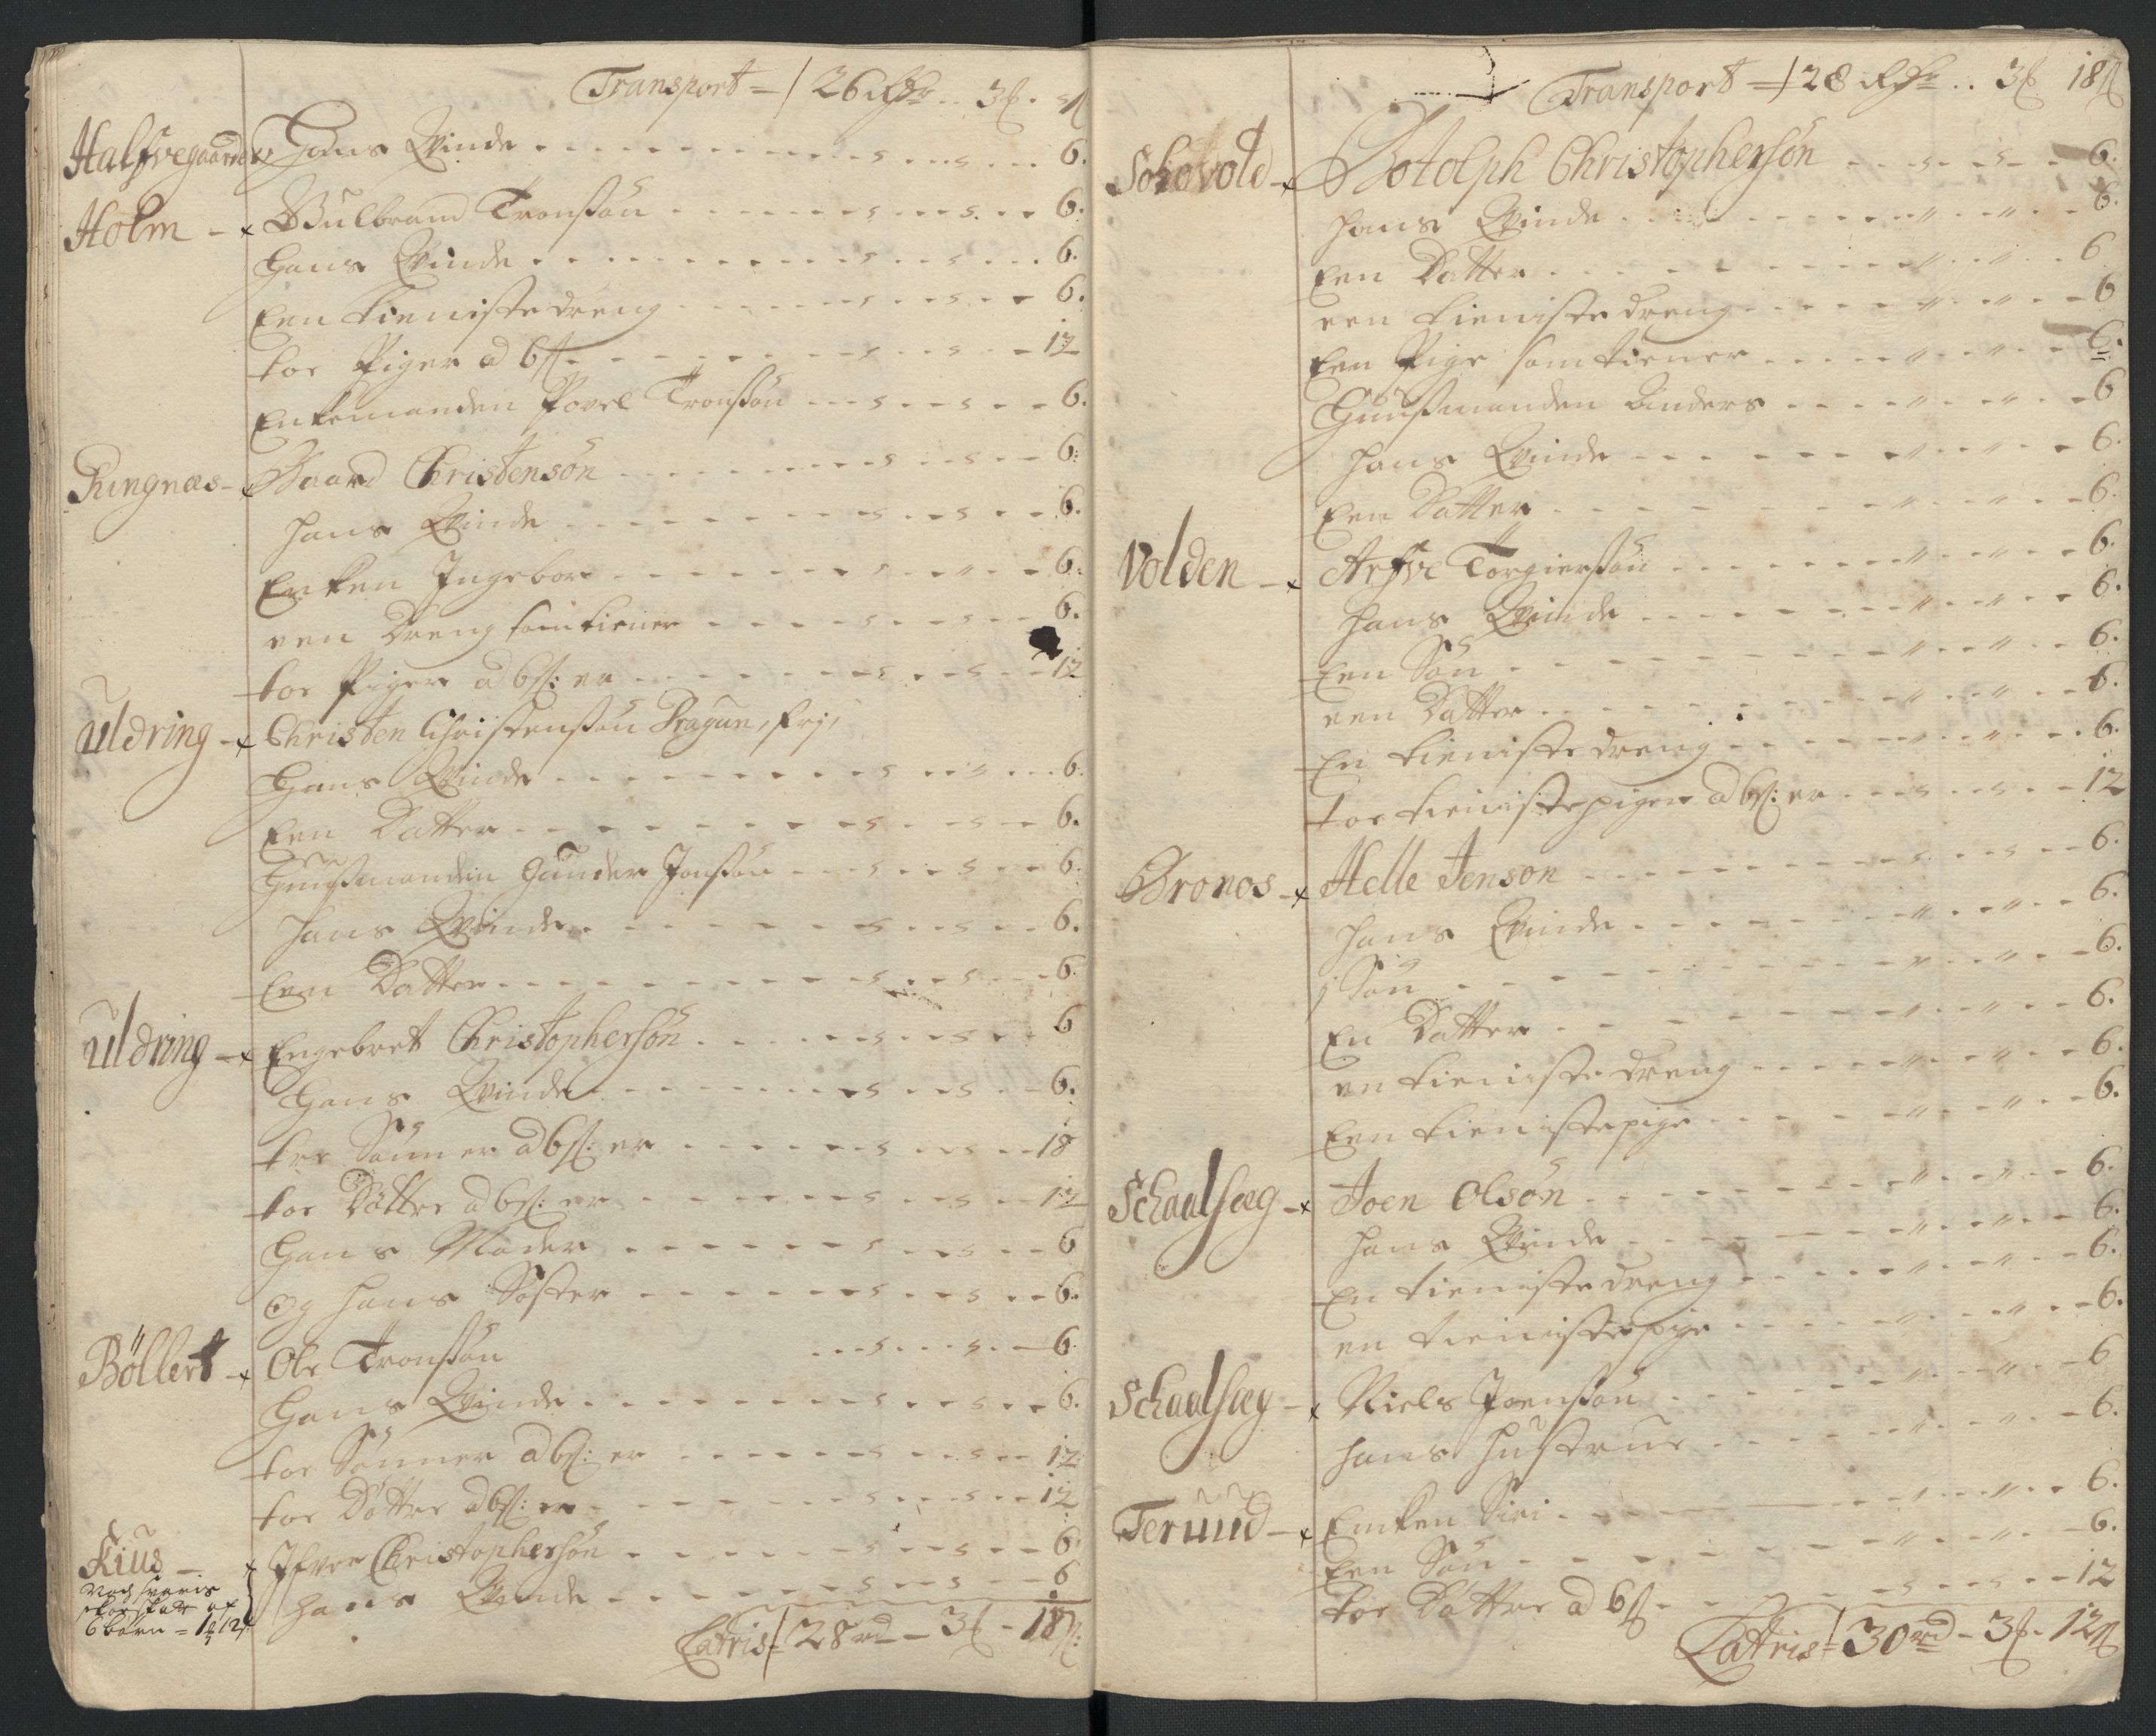 Transport = 26 Rdr .. 3ß . ₰
Halfvegaarden Hans Qvinde 6.
Holm - Gulbrand Tronsøn 6.
Hans Qvinde 6.
Een tienistedreng 6.
toe Piger ad 6ß 12
Enkemanden Povel Tronsøn 6.
Ringnæs - Gaard Christensøn 6.
hans Qvinde 6.
Enken Ingebor 6.
een Dreng som tiener 6.
toe Piger ad 6ß: er 12
uldring - Christen Christensøn Dragun, frj,
Hans Qvinde 6.
Een Datter 6.
Huusmanden Gunder Jonsøn 6.
hans Qvinde 6.
Een Datter 6.
uldring - Engebret Christophersøn 6
Hans Qvinde 6.
tre Sønner ad 6ß: er 18
toe Døttre ad 6ß: er 12
Hans Moder 6
og hans Søster 6.
Böllert - Ole Tronsøn 6.
Hans Qvinde 6.
toe Sønner ad 6ß: er 12
toe Døttre ad 6ß: er 12
Kius - Ifver Christophersøn 6.
Noch svaris
skoeskatt af
6 børn = 1 12
hans Qvinde 6
Latris = 28 rd - 3ß - 18ß:
Transport = 28 Rdr .. 3ß 18ß
Sokovold - Botolph Christophersøn 6.
hans Qvinde 6.
Een Datter 6
een tienistedreng 6
Een Pige som tiener 6.
Huusmanden Anders 6
hans Qvinde 6.
Een Datter 6.
Volden - Arfve Torgiersøn 6.
hans Qvinde 6.
Een Søn 6.
een Datter 6.
En tienistedreng 6.
toe tienistepiger ad 6ß: er 12
Bronos - Helle Jensøn 6.
hans Qvinde 6.
1 Søn 6.
En Datter 6.
en tienistedreng 6.
Een tienistepige 6.
Schaalsæg - Joen Olsøn 6.
hans Qvinde 6.
En tienistedreng 6.
en tienistepige 6.
Schaalsæg - Niels Joensøn 6
hans Hustrue 6.
Teruud - Encken Siri 6.
Een Søn 6.
toe Døttre ad 6ß 12
Latris = 30 rd - 3ß - 12ß